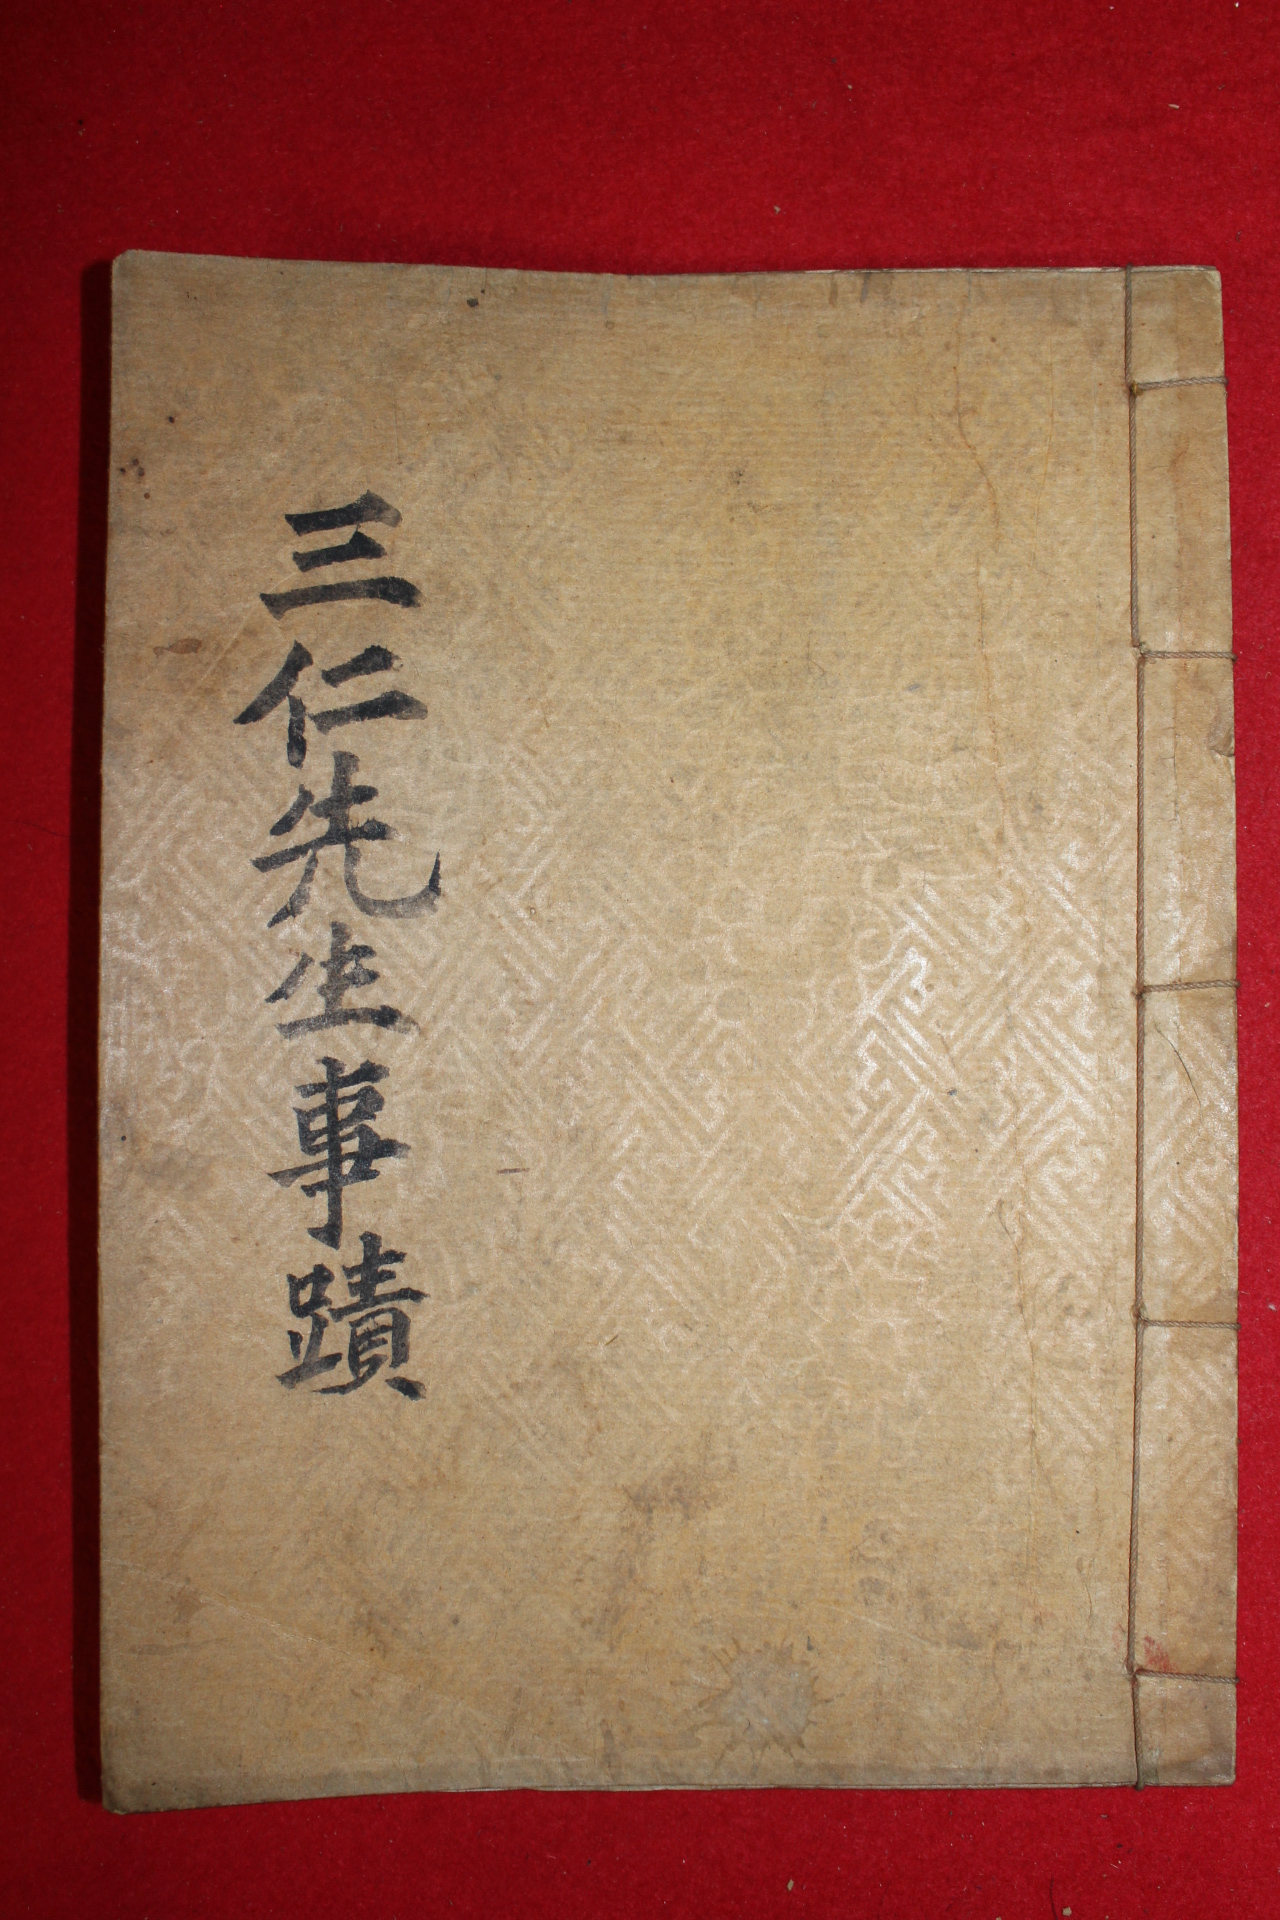 三仁先生事蹟